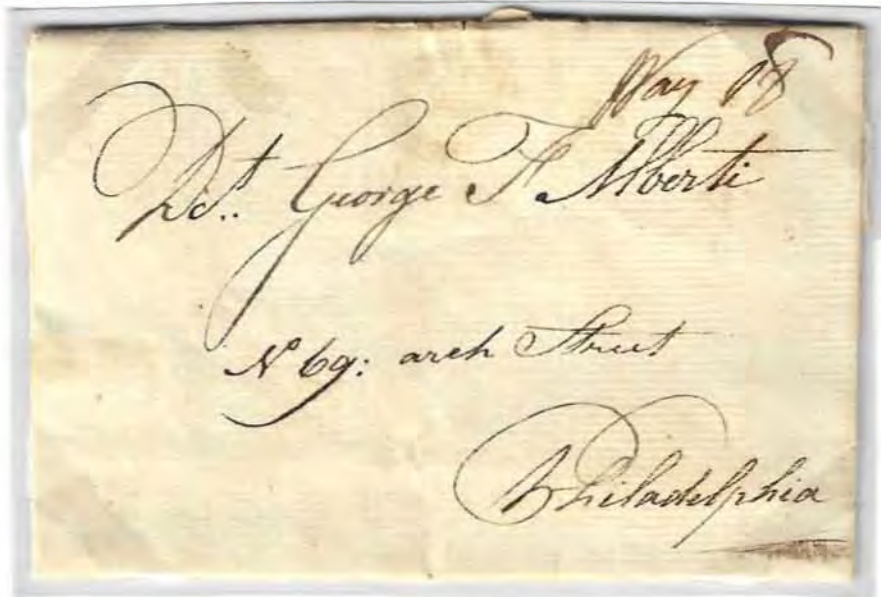 Way 18
Dct. George F Alberti
No 69: arch Street
Philadelphia